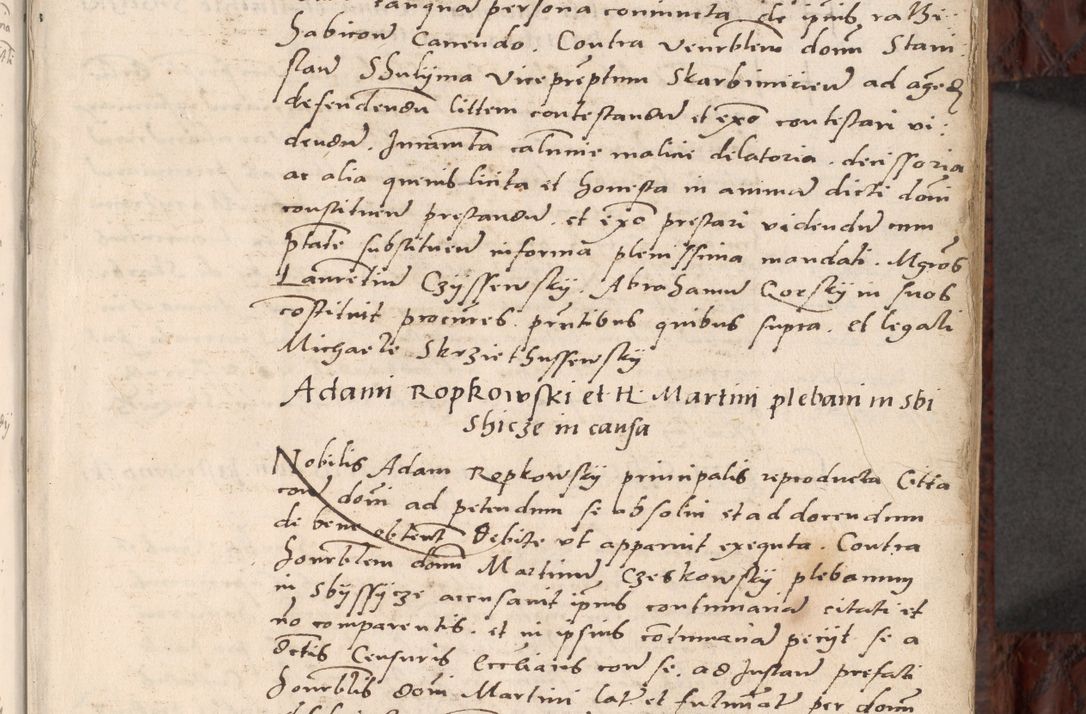 tanqua persona coniuncta de ipius rathi
habicoem Canendo. Contra Venrblem domm Stani
slaum Shulyma Vice preptum Skarbimirien ad agend
defendendum littem contestandum et exo contestari vi
dendum. Juramta calumnie malicie delatoria. decissoria
ac alia quevis licita et honesta in animam dicti domi
constituen prestandum. et exo prestari videndum cum
ptate substituen in forma plenissima mandati. Mgros
Laurentium Czyssewsky. Abrahamum Gorsky in suos
costituit procures. pntibus quibus supra. et legali
Michaele Skrziethussewsky
Adami Ropkowski et H. Martini plebani in Sbi
shicze in causa
Nobilis Adam Ropkowsky principalis reproducta Citta
com domi ad petendum se absolui et ad docendum
de bene obtent debite ut apparuit exequta. Contra
honrblem domm Martinum Czeskowsky plebanum
in Sbyssycze accusavit ipius contumaciam citati et
no comparentis. et in ipsius cotumaciam peciit se a
dctis Censuris Eccliacis com se. ad Instam prefati
honrblis domi Martini lat. et fulminat per domm